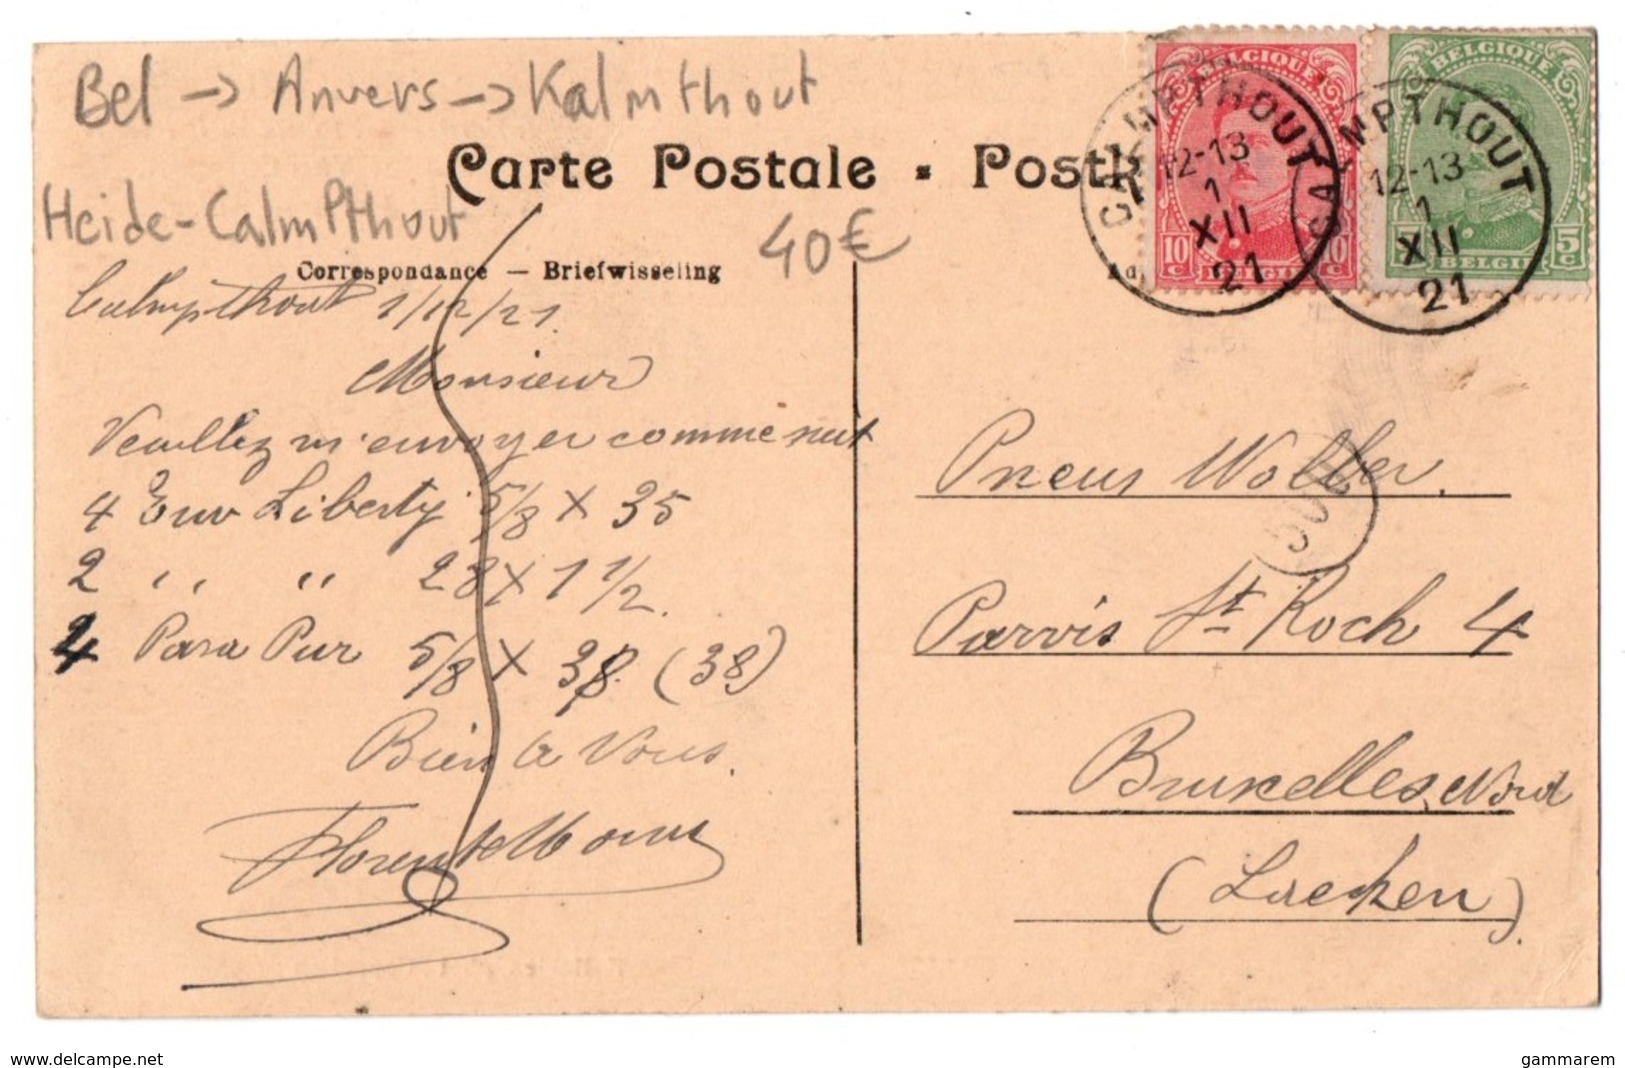 Bel -> Anvers -> Kalmthout
Carte Postale - Postk
Heide-Calmpthout
40€
Correspondance — Briefwisseling
Ad
BELGIQUE
10c 10c
BELGIË
BELGIQUE
5c 5c
BELGIË
CALMPTHOUT
12-13
1
XII
21
CALMPTHOUT
12-13
1
XII
21
Calmpthout 1/12/21
Monsieur
Veuillez m'envoyer comme suit
4 Env Liberty 5/8 X 35
2 " " 28 X 1 1/2.
4 Para Pur 5/8 X 38. (38)
Bien à Vous.
Pneus Wolber.
Parvis St Roch 4
Bruxelles, Nord
(Laeken).
www.delcampe.net
gammarem